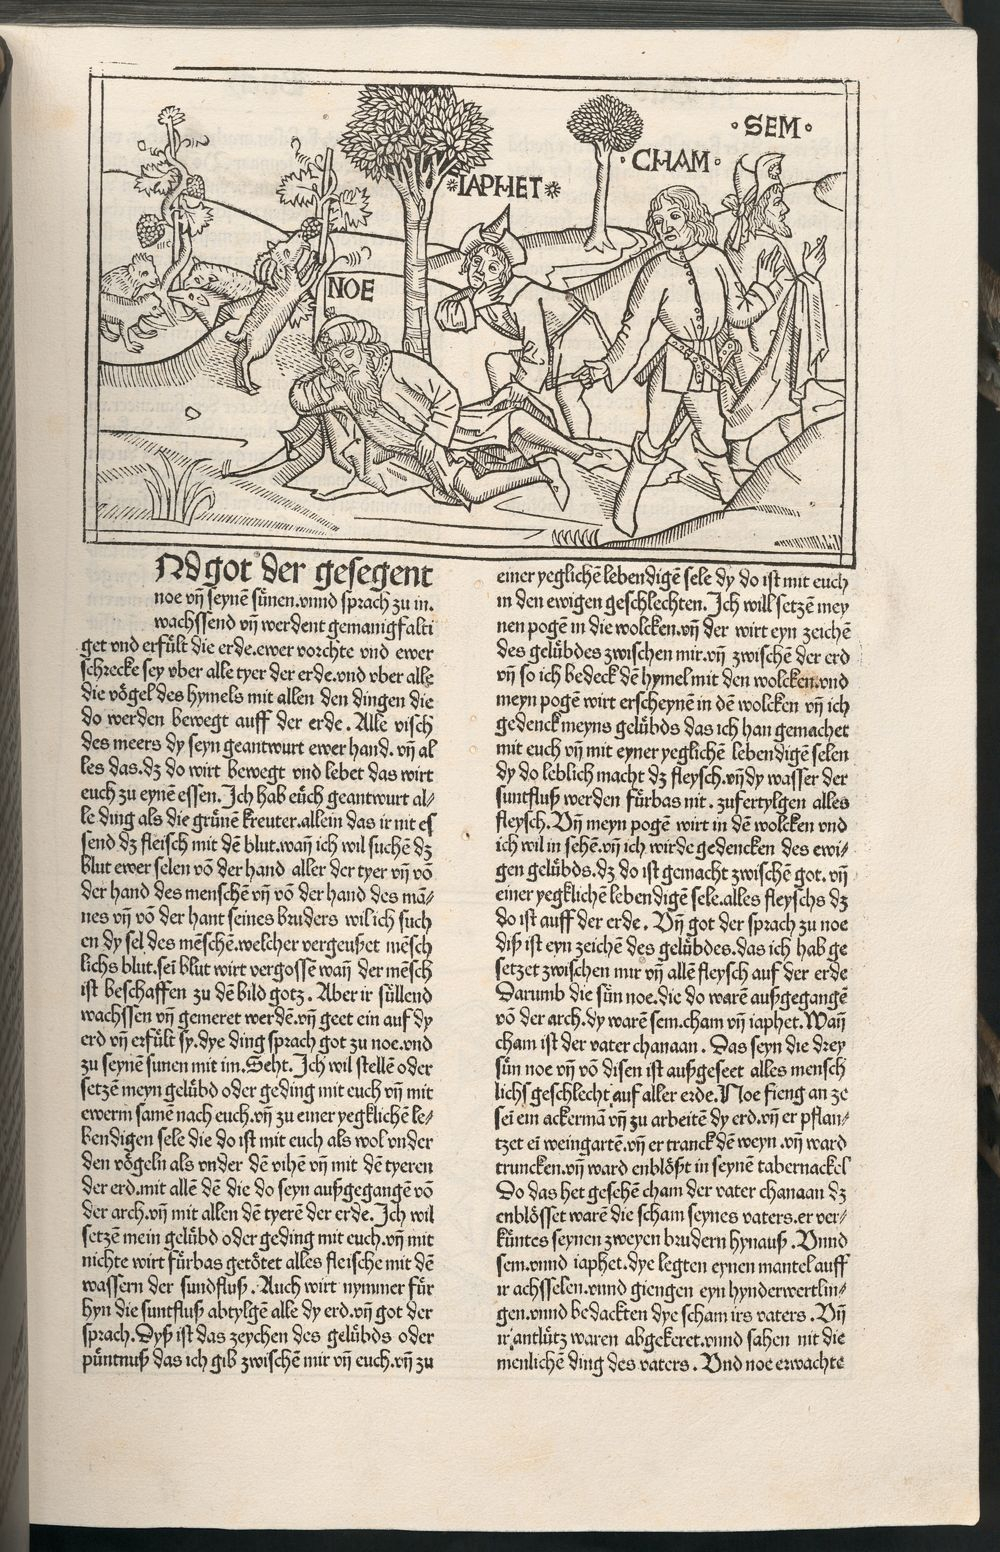 ·SEM·
·CHAM·
*IAPHET*
NOE
Nd got der gesegent
noe vñ seynē sünen.vnnd sprach zu in.
wachssend vñ werdent gemanigfalti
get vnd erfült die erde.ewer vorchte vnd ewer
schrecke sey vber alle tyer der erde.vnd vber alle
die vögel des hymels mit allen den dingen die
do werden bewegt auff der erde. Alle visch
des meers dy seyn geantwurt ewer hand. vñ al
les das.dz do wirt bewegt vnd lebet das wirt
euch zu eynē essen. Ich hab eüch geantwurt al⸗
le ding als die grünē kreuter.allein das ir nit es
send dz fleisch mit dē blut.wañ ich wil suchē dz
blut ewer selen vō der hand aller der tyer vñ vō
der hand des menschē vñ vō der hand des mā⸗
nes vñ vō der hant seines bruders wil ich such
en dy sel des mēschē.welcher vergeußet mēsch
lichs blut.sei blut wirt vergossē wañ der mēsch
ist beschaffen zu dē bild gotz. Aber ir süllend
wachssen vñ gemeret werdē.vñ geet ein auf dy
erd vñ erfült sy.dye ding sprach got zu noe.vnd
zu seynē sunen mit im.Seht. Ich wil stellē oder
setzē meyn gelübd oder geding mit euch vñ mit
ewerm samē nach euch.vñ zu einer yegklichē le⸗
bendigen sele die do ist mit euch als wol vnder
den vögeln als vnder dē vihē vñ mit dē tyeren
der erd.mit allē dē die do seyn außgegangē vō
der arch.vñ mit allen dē tyerē der erde. Ich wil
setzē mein gelübd oder geding mit euch.vñ mit
nichte wirt fürbas getötet alles fleische mit dē
wassern der sundfluß. Auch wirt nymmer für
hyn die suntfluß abtylgē alle dy erd.vñ got der
sprach. Dyß ist das zeychen des gelübds oder
püntnuß das ich gib zwischē mir vñ euch.vñ zu
einer yeglichē lebendigē sele dy do ist mit euch
in den ewigen geschlechten. Ich will setzē mey
nen pogē in die wolcken.vñ der wirt eyn zeichē
des gelübdes zwischen mir.vñ zwischē der erd
vñ so ich bedeck dē hymel mit den wolcken.vnd
meyn pogē wirt erscheynē in dē wolcken vñ ich
gedenck meyns gelübds das ich han gemachet
mit euch vñ mit eyner yeglichē lebendigē selen
dy do leblich macht dz fleysch.vñ dy wasser der
suntfluß werden fürbas nit. zufertylgen alles
fleysch. Vñ meyn pogē wirt in dē wolcken vnd
ich wil in sehē.vñ ich wirde gedencken des ewi⸗
gen gelübds.dz do ist gemacht zwischē got. vñ
einer yegklichē lebendigē sele.alles fleyschs dz
do ist auff der erde. Vñ got der sprach zu noe
diß ist eyn zeichē des gelübdes.das ich hab ge
setzet zwischen mir vñ allē fleysch auf der erde
Darumb die sün noe.die do warē außgegangē
vō der arch.dy warē sem.cham vñ iaphet. Wañ
cham ist der vater chanaan. Das seyn die drey
sün noe vñ vō disen ist außgeseet alles mensch
lichs geschlecht auf aller erde. Noe fieng an ze
sei ein ackermā vñ zu arbeitē dy erd.vñ er pflan⸗
tzet ei weingartē.vñ er tranck dē weyn .vñ ward
truncken.vñ ward enblößt in seynē tabernackel
Do das het gesehē cham der vater chanaan dz
enblösset warē die scham seynes vaters.er ver⸗
küntes seynen zweyen brudern hynauß. Vnnd
sem.vnnd iaphet.dye legten eynen mantel auff
ir achsselen.vnnd giengen eyn hynderwertlin⸗
gen.vnnd bedackten dye scham irs vaters. Vñ
ir antlütz waren abgekeret.vnnd sahen nit die
menlichē ding des vaters. Vnd noe erwachte